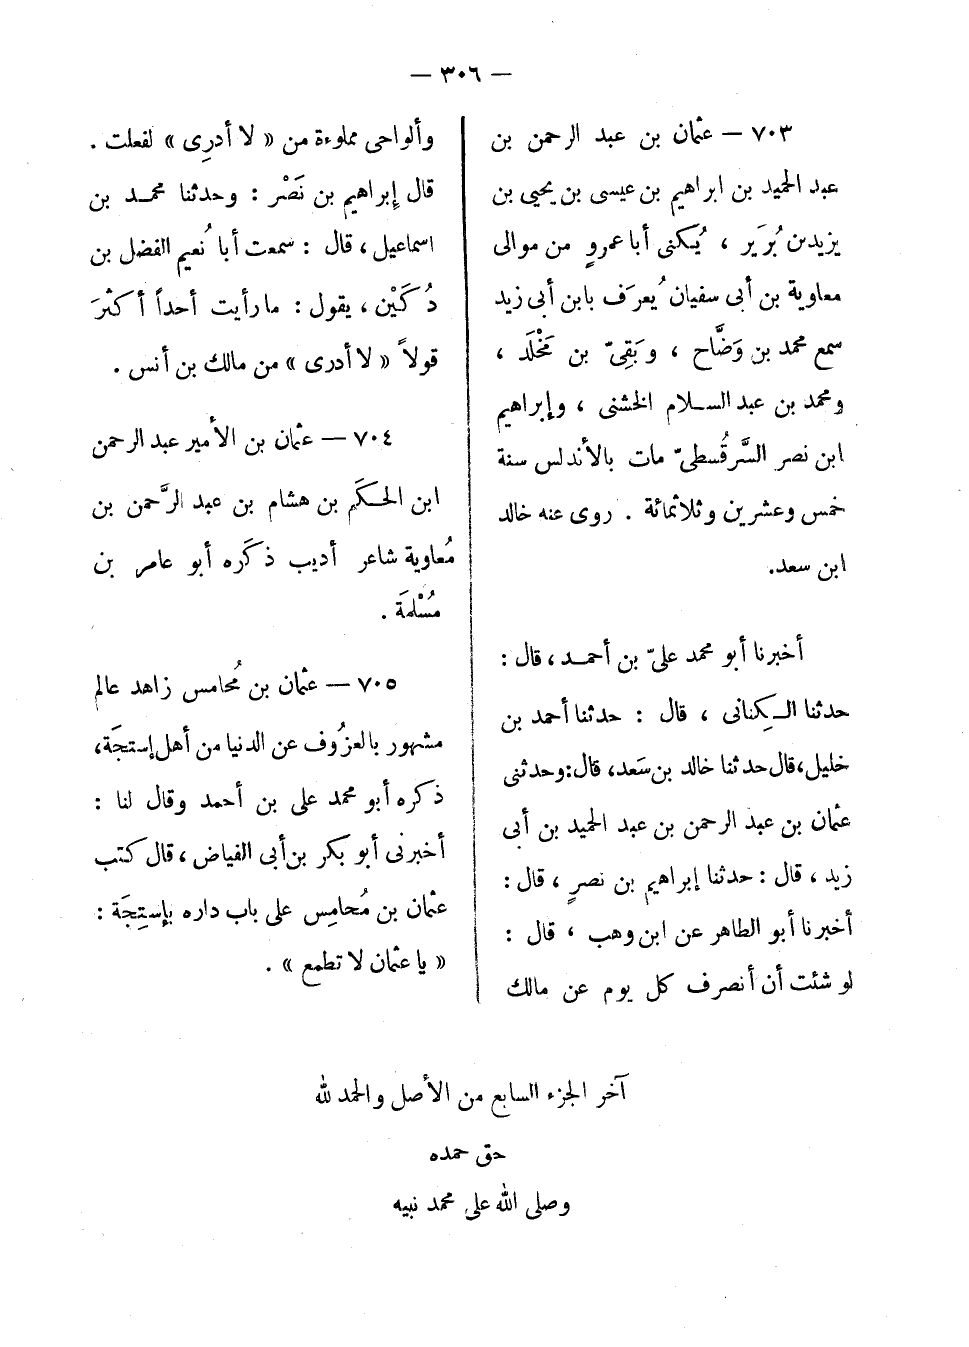 — ٣٠٦ —
٧٠٣ — عثمان بن عبد الرحمن بن
عبد الحميد بن ابراهيم بن عيسى بن يحيى بن
يزيد بن بُرَير ، يُكنى أبا عمروٍ من موالى
معاوية بن أبى سفيان يُعرَف بابن أبى زيد
سمع محمد بن وَضَّاح ، وبَقِىّ بن مَخْلَد ،
ومحمد بن عبد السلام الخشنى ، وإبراهيم
ابن نصر السَّرقُسطىّ مات بالأندلس سنة
خمس وعشرين وثلاثمائة . روى عنه خالد
ابن سعد.
أخبرنا أبو محمد علىّ بن أحمد ، قال :
حدثنا الكِنانى ، قال : حدثنا أحمد بن
خليل، قال حدثنا خالد بن سَعد، قال: وحدثنى
عثمان بن عبد الرحمن بن عبد الحميد بن أبى
زيد ، قال : حدثنا إبراهيم بن نصرٍ ، قال :
أخبرنا أبو الطاهر عن ابن وهب ، قال :
لو شئت أن أنصرف كل يوم عن مالك
وألواحى مملوءة من « لا أدرِى » لفعلت .
قال إبراهيم بن نَصْر : وحدثنا محمد بن
اسماعيل ، قال : سمعت أبا نُعيم الفضل بن
دُكَيْن ، يقول : ما رأيت أحداً أكثرَ
قولاً « لا أدرى » من مالك بن أنس .
٧٠٤ — عثمان بن الأمير عبد الرحمن
ابن الحكَم بن هشام بن عبد الرَّحمن بن
مُعاوية شاعر أديب ذكَره أبو عامر بن
مُسْلمَة .
٧٠٥ — عثمان بن مُحامس زاهد عالم
مشهور بالعزُوف عن الدنيا من أهل إستجَة،
ذكره أبو محمد على بن أحمد وقال لنا :
أخبرنى أبو بكر بن أبى الفياض ، قال كتب
عثمان بن مُحامِس على باب داره بإستِجَة :
« يا عثمان لا تطمع » .
آخر الجزء السابع من الأصل والحمد لله
حق حمده
وصلى الله على محمد نبيه